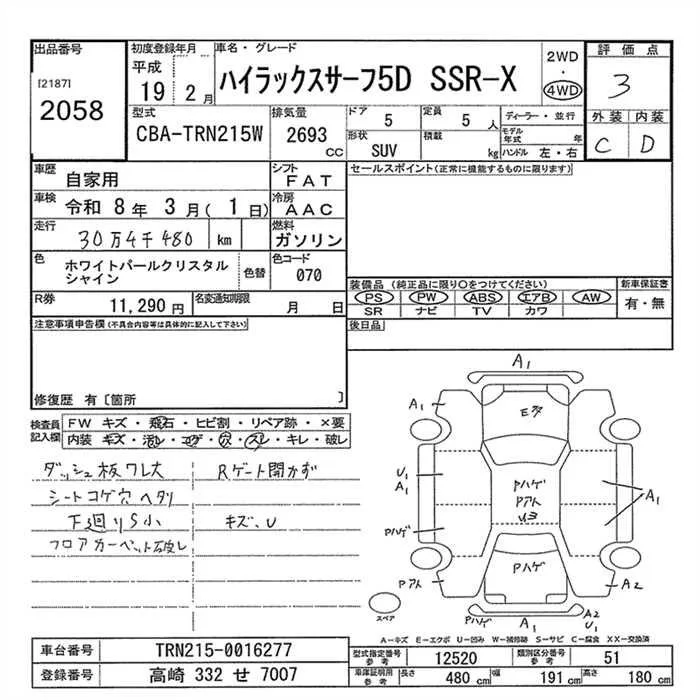 出品番号
[2187]
2058
初度登録年月
平成
19 2月
車名・グレード
ハイラックスサーフ5D SSR-X
2WD
・
4WD
評価点
3
外装 内装
C D
型式
CBA-TRN215W
排気量
2693
CC
ドア
5
定員
5 人
形状
SUV
積載
kg
ディーラー・並行
モデル年式 年
ハンドル 左・右
車歴
自家用
シフト
FAT
車検
令和 8年 3月(1日)
冷房
AAC
走行
30万4千480 km
燃料
ガソリン
色
ホワイトパールクリスタル
シャイン
色替
色コード
070
R券
11,290 円
名変通知期限
月 日
セールスポイント(正常に機能するものに限ります)
装備品 (純正品に限り○をつけてください)
PS PW ABS エアB AW
SR ナビ TV カワ
新車保証書
有・無
後日品
注意事項申告欄(不具合内容等は具体的に記入して下さい)
修復歴 有〔箇所 〕
検査員
記入欄
FW キズ・飛石・ヒビ割・リペア跡・×要
内装 キズ・汚レ・コゲ・穴・スレ・キレ・破レ
ダッシュ板ワレ大
Rゲート開かず
シートコゲ穴ヘタリ
下廻りS小
キズ、U
フロアカーペット破レ
A1
A1
A1
Eタ
U1
A1
Pハゲ
Pアト
U3
A1
Pハゲ
Pハゲ
Pアト
A2
スペア
Pハゲ
A1
A2
U1
A-キズ E-エクボ U-凹み W-補修跡 S-サビ C-腐食 XX-交換済
車台番号
TRN215-0016277
登録番号
高崎 332 せ 7007
型式指定番号
参考
12520
類別区分番号
参考
51
車庫証明用
参考
長さ
480 cm
幅
191 cm
高さ
180 cm